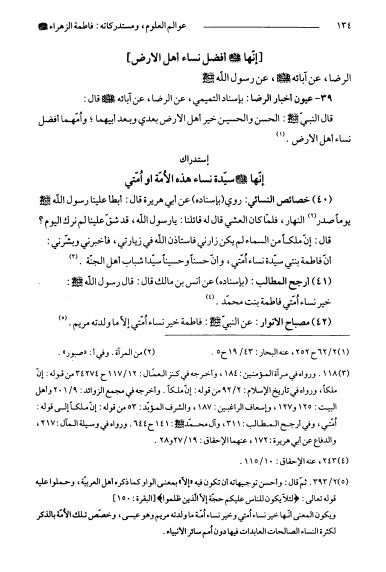 ١٣٤ عوالم العلوم، ومستدركاته: فاطمة الزهراء ﷺ
[إنّها ﷺ أفضل نساء أهل الأرض]
الرضا، عن آبائه ﷺ، عن رسول اللّه ﷺ
٣٩- عيون أخبار الرضا: بإسناد التميمي، عن الرضا، عن آبائه ﷺ قال:
قال النبيّ ﷺ: الحسن والحسين خير أهل الأرض بعدي وبعد أبيهما؛ وأمّهما أفضل
نساء أهل الأرض. (١)
إستدراك
إنّها ﷺ سيّدة نساء هذه الأمّة أو أمّتي
(٤٠) خصائص النسائي: روي (بإسناده) عن أبي هريرة قال: أبطأ علينا رسول اللّه ﷺ
يوماً صدر(٢) النهار، فلمّا كان العشي قال له قائلنا: يا رسول اللّه، قد شقّ علينا لم نرك اليوم؟
قال: إنّ ملكاً من السماء لم يكن زارني فاستأذن اللّه في زيارتي، فأخبرني وبشّرني:
أنّ فاطمة بنتي سيّدة نساء أمّتي، وأنّ حسناً وحسيناً سيّدا شباب أهل الجنّة. (٣)
(٤١) أرجح المطالب: (بإسناده) عن أنس بن مالك قال: قال رسول اللّه ﷺ:
خير نساء أمّتي فاطمة بنت محمّد. (٤)
(٤٢) مصباح الأنوار: عن النبيّ ﷺ: فاطمة خير نساء أمّتي إلاّ ما ولدته مريم. (٥)
(١) ٦٢/٢ ح٢٥٢، عنه البحار: ١٩/٤٣ ح٥. (٢) من المرآة. وفي أ: «صبور».
(٣) ١١٨. ورواه في مرآة المؤمنين: ١٨٤، وأخرجه في كنز العمّال: ١١٧/١٢ ح٣٤٢٧٤ من قوله: إنّ
ملكاً، ورواه في تاريخ الإسلام: ٩٢/٢ من قوله: إنّ ملكاً. وأخرجه في مجمع الزوائد: ٢٠١/٩ وأهل
البيت: ١٢٥ و١٢٧، وإسعاف الراغبين: ١٨٧، والشرف المؤبّد: ٥٣ من قوله: إنّ ملكاً إلى قوله:
أمّتي، وفي أرجح المطالب: ٣١١، وآل محمّد ﷺ: ١٤١ ح٦٤٤. ورواه في وسيلة المآل: ٢١٧،
والدفاع عن أبي هريرة: ١٧٢، عنهما الإحقاق: ٢٧/١٩ و٢٨.
(٤) ٢٤٣، عنه الإحقاق: ١١٥/١٠.
(٥) ٣٩٣/٢. ثمّ قال: وأحسن توجيهاته أن تكون فيه «إلاّ» بمعنى الواو كما ذكره أهل العربيّة، وحملوا عليه
قوله تعالى: ﴿لئلاّ يكون للناس عليكم حجّة إلاّ الّذين ظلموا﴾ [البقرة: ١٥٠]
ويكون المعنى أنّها خير نساء أمتي وخير نساء أمّة ما ولدته مريم وهو عيسى، وخصّص تلك الأمّة بالذكر
لكثرة النساء الصالحات العابدات فيها دون أمم سائر الأنبياء.